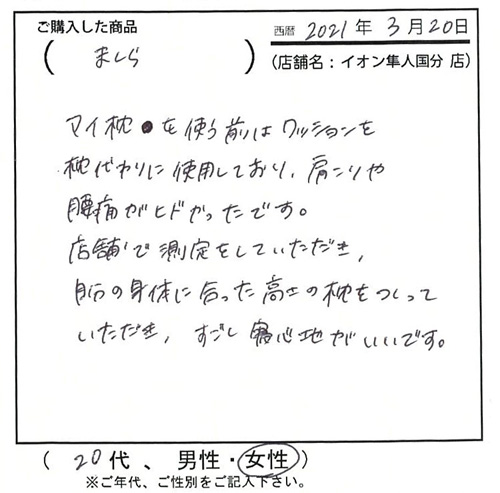 ご購入した商品
(まくら)
西暦 2021年 3月20日
(店舗名：イオン隼人国分 店)
マイ枕を使う前はクッションを
枕代わりに使用しており、肩こりや
腰痛がヒドかったです。
店舗で測定をしていただき、
自分の身体に合った高さの枕をつくって
いただき、すごし寝心地がいいです。
(20代、男性・女性)
※ご年代、ご性別をご記入下さい。